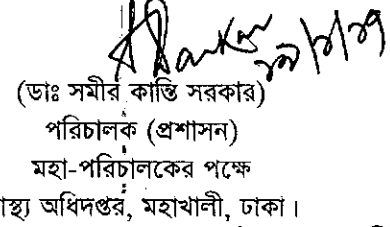 (ডাঃ সমীর কান্তি সরকার)
পরিচালক (প্রশাসন)
মহা-পরিচালকের পক্ষে
অধিদপ্তর, মহাখালী, ঢাকা।